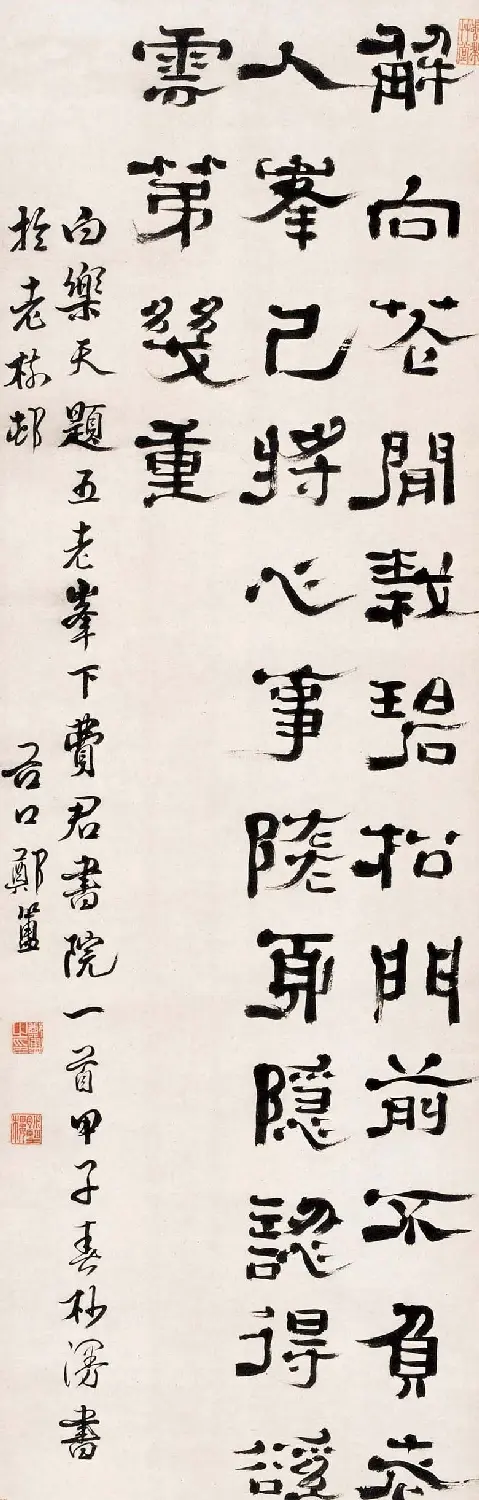 解向花間栽碧松門前不負老
人峯已將心事隨身隱認得谿
雲第幾重
白樂天題五老峯下費君書院一首甲子春杪漫書
於老邨
谷口鄭簠